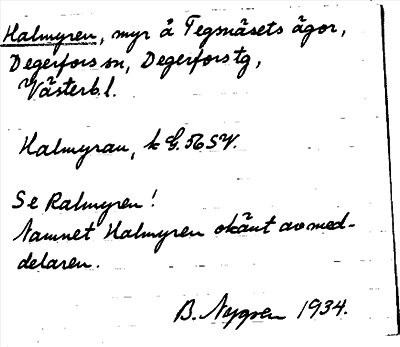 Halmyren, myr å Tegsnäsets ägor,
Degerfors sn, Degerfors tg,
Västerb.l.
Halmyran, k G. 56 SV.
Se Ralmyren!
Namnet Halmyren okänt av med-
delaren.
B. Nygren 1934.